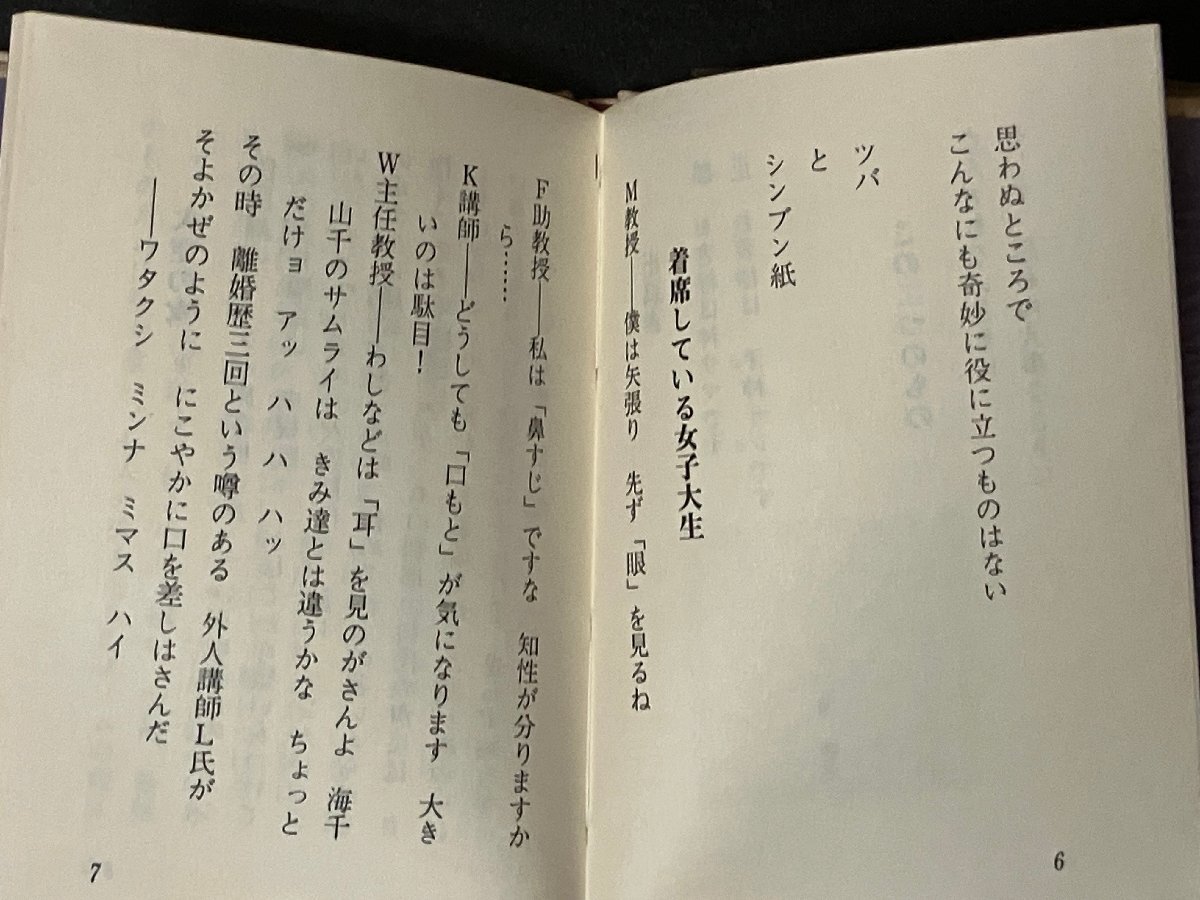 思わぬところで
こんなにも奇妙に役に立つものはない
ツバ
と
シンブン紙
着席している女子大生
M教授――僕は矢張り　先ず「眼」を見るね
6
F助教授――私は「鼻すじ」ですな　知性が分りますか
ら……
K講師――どうしても「口もと」が気になります　大き
いのは駄目！
W主任教授――わしなどは「耳」を見のがさんよ　海千
山千のサムライは　きみ達とは違うかな　ちょっと
だけョ　アッ　ハ　ハ　ハッ
その時　離婚歴三回という噂のある　外人講師L氏が
そよかぜのように　にこやかに口を差しはさんだ
――ワタクシ　ミンナ　ミマス　ハイ
7